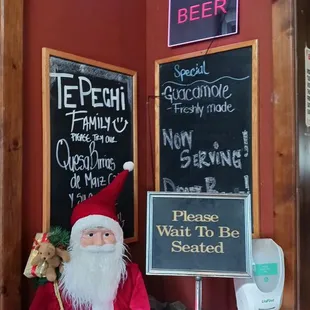 BEER
TEPECHI
FAMILY
PLEASE TRY OUR
QuesaBirrias
de Maiz
Special
Guacamole
-Freshly made
NOW
SERVING
Please
Wait To Be
Seated